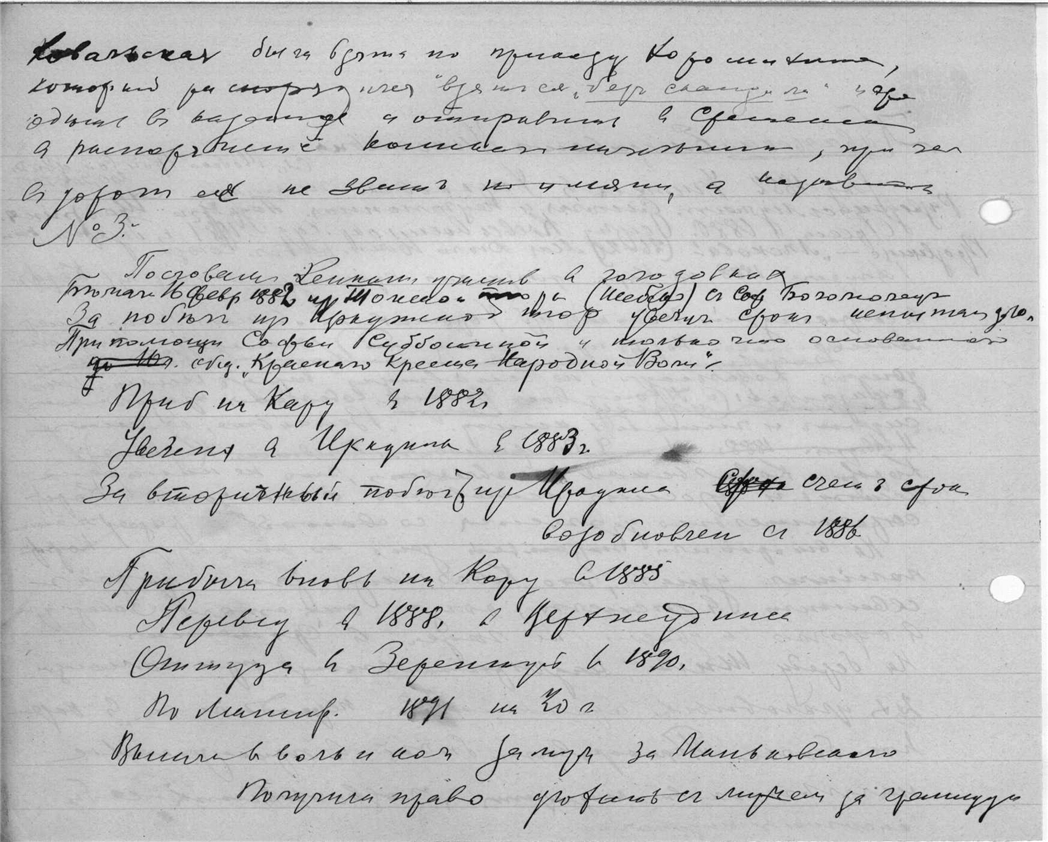 Ковальская была взята по приказу Хоромихина,
который распорядился "взять её, без скандала"
одели в казённое и отправили в Сретенск
в распоряжение коменданта, при чем
в дороге её не звать по имени, а называть
№ 3.
Последовали в голодовках
Бежала 16 февр 1882 из Иркутской тюр (Побег) с Соф Богомолец
За побег из Иркутской тюр увелич срок
При помощи Софьи Субботиной и только что основанного
общ. "Красного Креста Народной Воли".
Приб на Кару в 1882г
Увезена в Иркутск в 1883 г.
За вторичный побег из Иркутска счет срока
возобновлен с 1886
Прибыла вновь на Кару в 1885
Перевед в 1888. в Верхнеудинск
Оттуда в Зерентуй в 1890.
По манир. 1891 на 20 г
Вышла в вольн ком замуж за Маньковского
Получила право уехать с мужем за границу